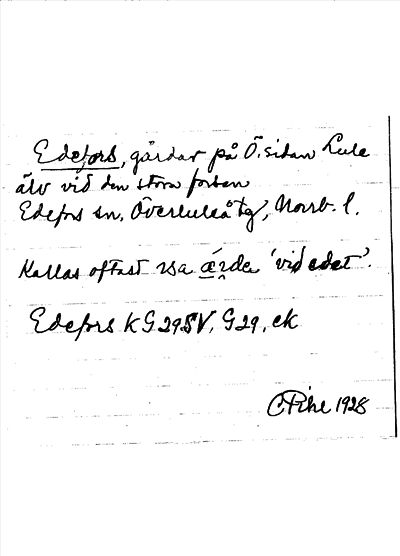 Edefors, gårdar på Ö. sidan Lule
älv vid den stora forsen
Edefors sn, Överluleå tg, Norrb. l.
Kallas oftast vsa 'vid edet'.
Edefors K G 29 SV, G 29, ek
C Pihl 1928